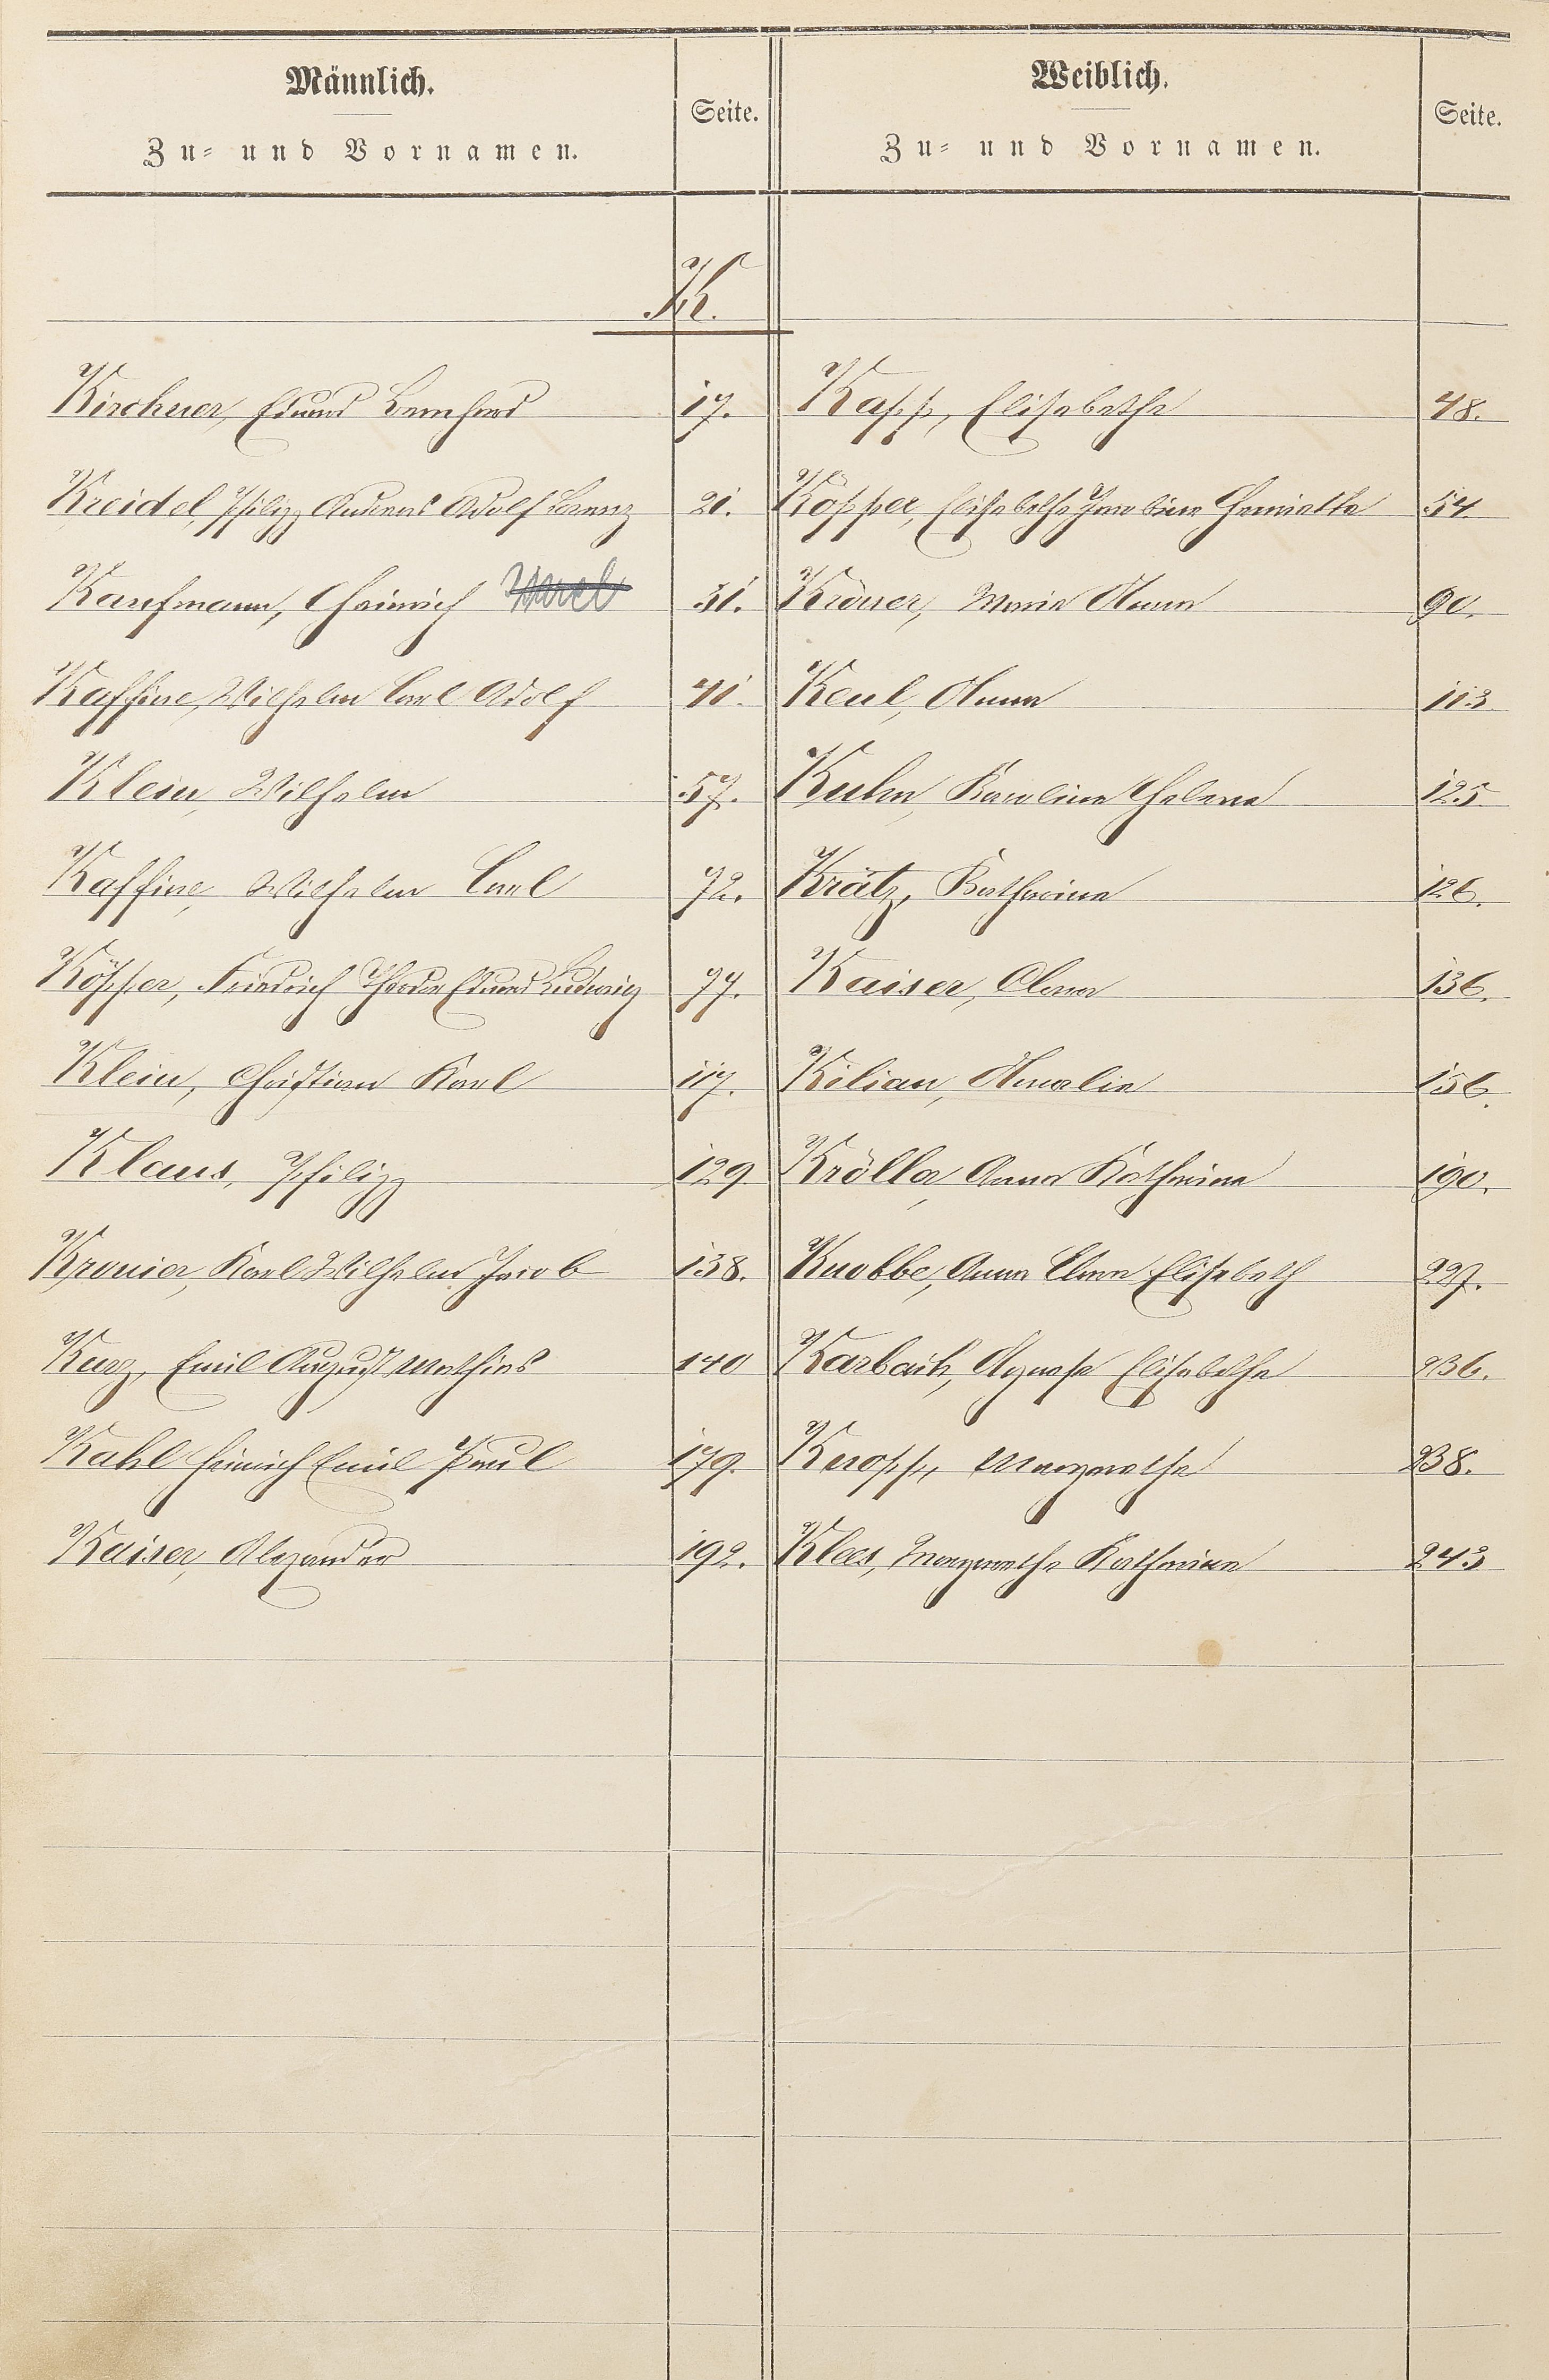 Männlich.
Zu- und Vornamen.
Seite.
Weiblich.
Zu- und Vornamen.
Seite.
K.
Kirchner, Eduard Bernhard 17.
Kapp, Elisabethe 48.
Kreidel, Philipp Andreas Adolf Lorenz 21.
Köpper, Elisabethe Jacobine Henriette 54.
Kaufmann, Heinrich 31.
Kröner, Maria Anna 90.
Kaffine, Wilhelm Carl Adolf 41.
Keul, Anna 113
Klein, Wilhelm 57.
Kuhn, Karoline Helene 125
Kaffine, Wilhelm Carl 72.
Krätz, Katharina 126.
Köpper, Friedrich Theodor Eduard Ludwig 77.
Kaiser, Olma 136.
Klein, Christian Karl 117.
Kilian, Amalie 156.
Klaus, Philipp 129
Kröller, Anna Katharina 190.
Kronier, Karl Wilhelm Jacob 138.
Knobbe, Anna Clara Elisabeth 227.
Kurz, Emil August Mathias 140
Karbach, Agnesse Elisabethe 236.
Kahl Heinrich Emil Paul 179.
Kropp, Margarethe 238.
Kaiser, Alexander 192.
Klees, Margarethe Katharina 243